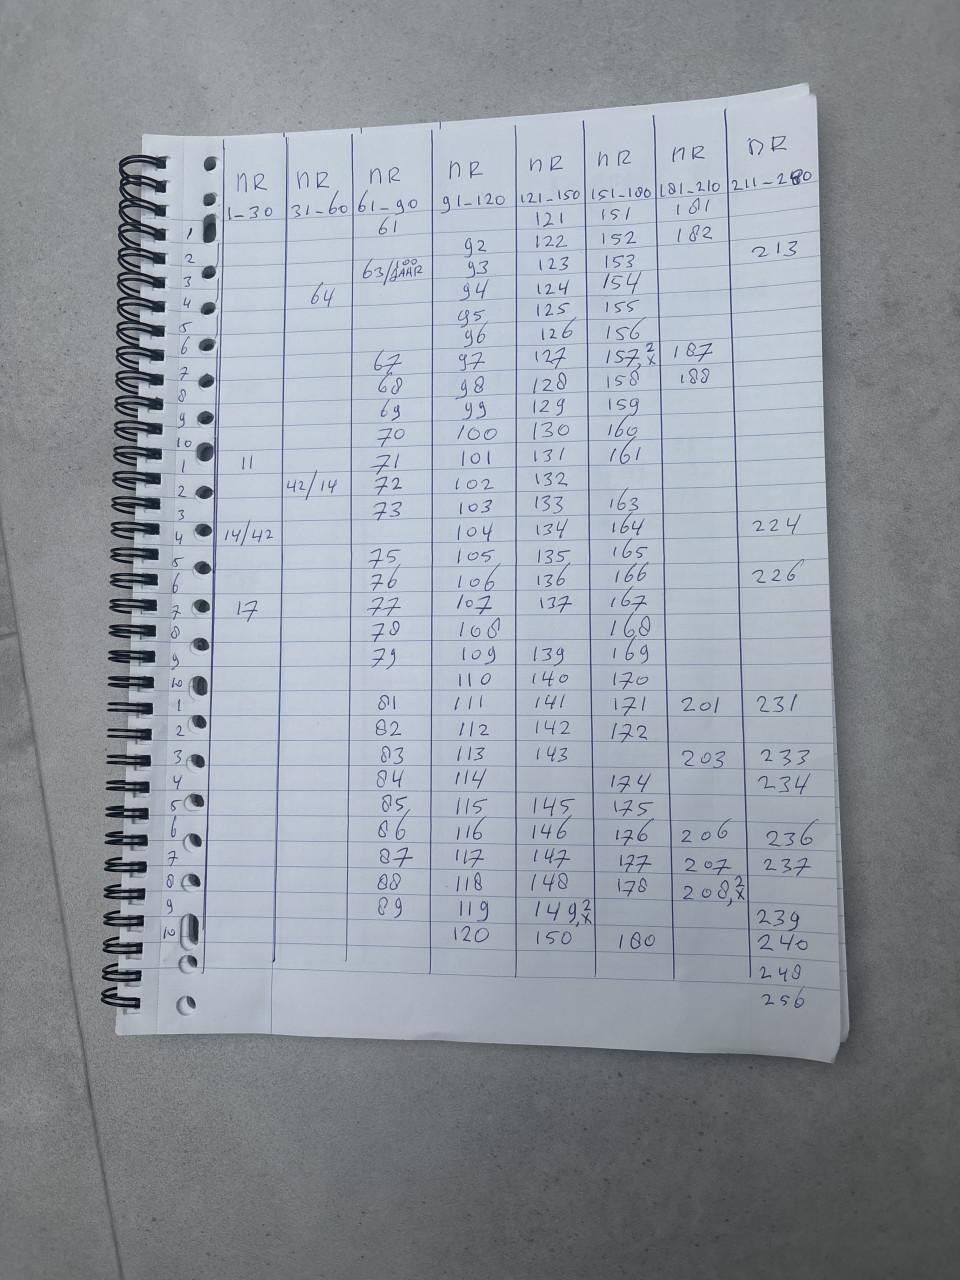 NR NR NR NR NR NR NR NR
1-30 31-60 61-90 91-120 121-150 151-180 181-210 211-240
1 61 121 151 181
2 92 122 152 182
3 63/100 JAAR 93 123 153 213
4 64 94 124 154
5 95 125 155
6 96 126 156
7 67 97 127 157, 2x 187
8 68 98 128 158 188
9 69 99 129 159
10 70 100 130 160
1 11 71 101 131 161
2 42/14 72 102 132
3 73 103 133 163
4 14/42 104 134 164 224
5 75 105 135 165
6 76 106 136 166 226
7 17 77 107 137 167
8 78 108 168
9 79 109 139 169
10 110 140 170
1 81 111 141 171 201 231
2 82 112 142 172
3 83 113 143 203 233
4 84 114 174 234
5 85 115 145 175
6 86 116 146 176 206 236
7 87 117 147 177 207 237
8 88 118 148 178 208, 2x
9 89 119 149, 2x 239
10 120 150 180 240
248
256